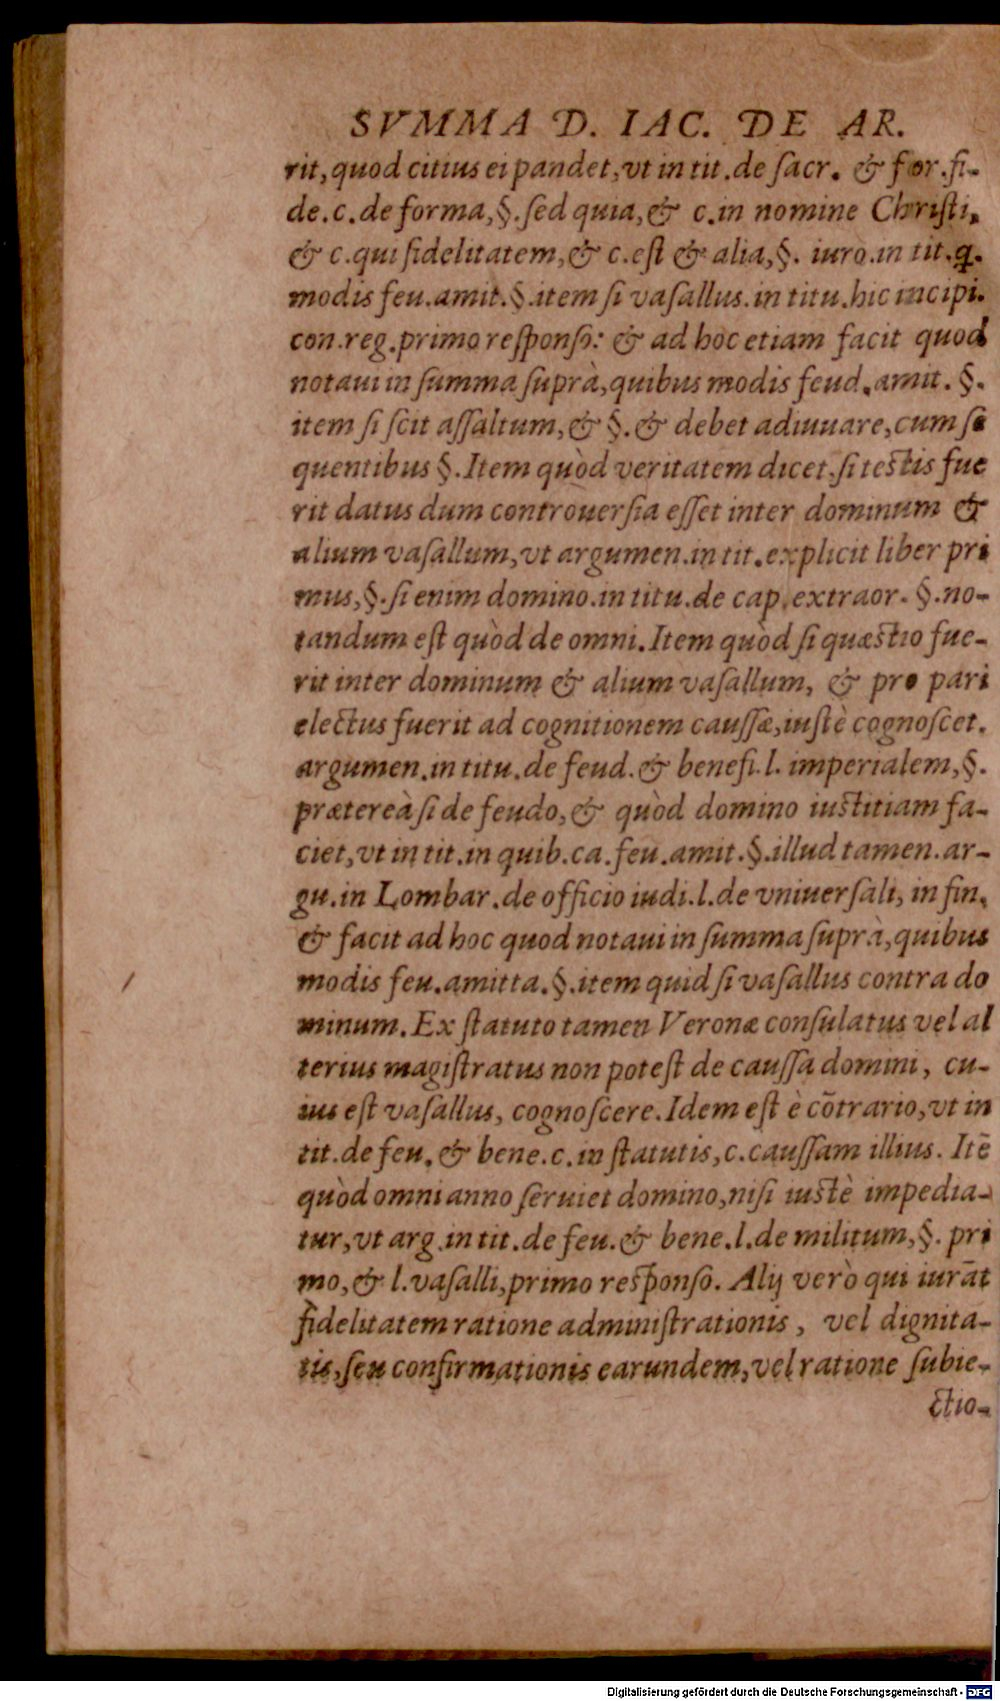 SVMMA D. IAC. DE AR.
rit, quod citius ei pandet, vt in tit. de ſacr. & for. fi-
de. c. de forma, §. ſed quia, & c. in nomine Chriſti,
& c. qui fidelitatem, & c. eſt & alia, §. iuro. in tit. q.
modis feu. amit. §. item ſi vaſallus. in titu. hic incipi.
con. reg. primo reſponſo: & ad hoc etiam facit quod
notaui in ſumma ſuprà, quibus modis feud. amit. §.
item ſi ſcit aſſaltum, & §. & debet adiuuare, cum ſe
quentibus §. Item quòd veritatem dicet, ſi teſtis fue
rit datus dum controuerſia eſſet inter dominum &
alium vaſallum, vt argumen. in tit. explicit liber pri
mus, §. ſi enim domino. in titu. de cap. extraor. §. no-
tandum eſt quòd de omni. Item quòd ſi quæſtio fue-
rit inter dominum & alium vaſallum, & pro pari
electus fuerit ad cognitionem cauſſæ, iuſtè cognoſcet.
argumen. in titu. de feud. & benefi. l. imperialem, §.
prætereà ſi de feudo, & quòd domino iuſtitiam fa-
ciet, vt in tit. in quib. ca. feu. amit. §. illud tamen. ar-
gu. in Lombar. de officio iudi. l. de vniuerſali, in fin.
& facit ad hoc quod notaui in ſumma ſuprà, quibus
modis feu. amitta. §. item quid ſi vaſallus contra do
minum. Ex ſtatuto tamen Veronæ conſulatus vel al
terius magiſtratus non poteſt de cauſſa domini, cu-
ius eſt vaſallus, cognoſcere. Idem eſt è cõtrario, vt in
tit. de feu. & bene. c. in ſtatutis, c. cauſſam illius. Itē
quòd omni anno ſeruiet domino, niſi iuſtè impedia-
tur, vt arg. in tit. de feu. & bene. l. de militum, §. pri
mo, & l. vaſalli, primo reſponſo. Alij verò qui iurãt
fidelitatem ratione adminiſtrationis, vel dignita-
tis, ſeu confirmationis earundem, vel ratione ſubie-
ctio-
Digitalisierung gefördert durch die Deutsche Forschungsgemeinschaft - DFG